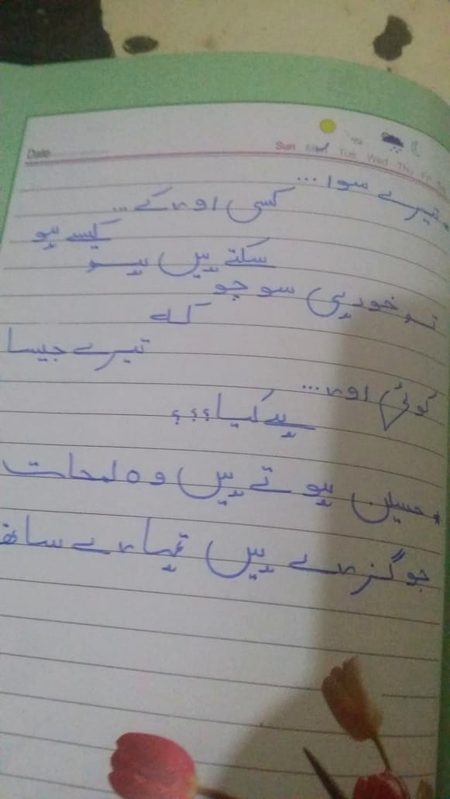 Date Sun Mon Tue Wed Thu Fri
تیرے سوا...
کسی اور کے...
کیسے ہو
سکتے ہیں ہم
تو خود ہی سوچو
کہ
تیرے جیسا
کوئی اور...
ہے کیا؟؟؟
* حسیں ہوتے ہیں وہ لمحات
جو گزرے ہیں تمہارے ساتھ